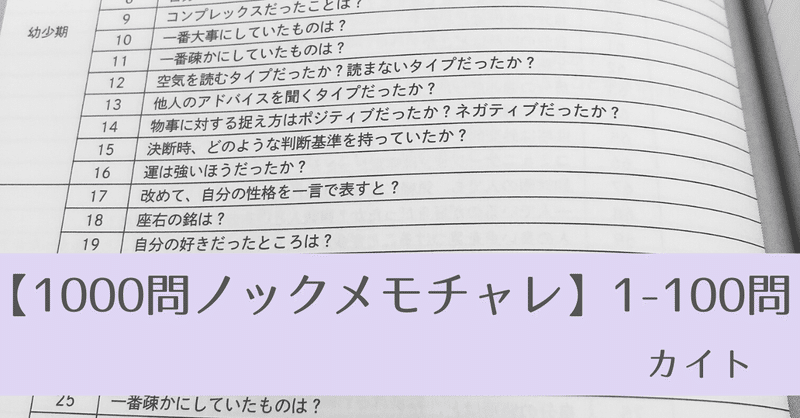 幼少期
9 コンプレックスだったことは？
10 一番大事にしていたものは？
11 一番疎かにしていたものは？
12 空気を読むタイプだったか？読まないタイプだったか？
13 他人のアドバイスを聞くタイプだったか？
14 物事に対する捉え方はポジティブだったか？ネガティブだったか？
15 決断時、どのような判断基準を持っていたか？
16 運は強いほうだったか？
17 改めて、自分の性格を一言で表すと？
18 座右の銘は？
19 自分の好きだったところは？
【1000問ノックメモチャレ】1-100問
カイト
25 一番疎かにしていたものは？